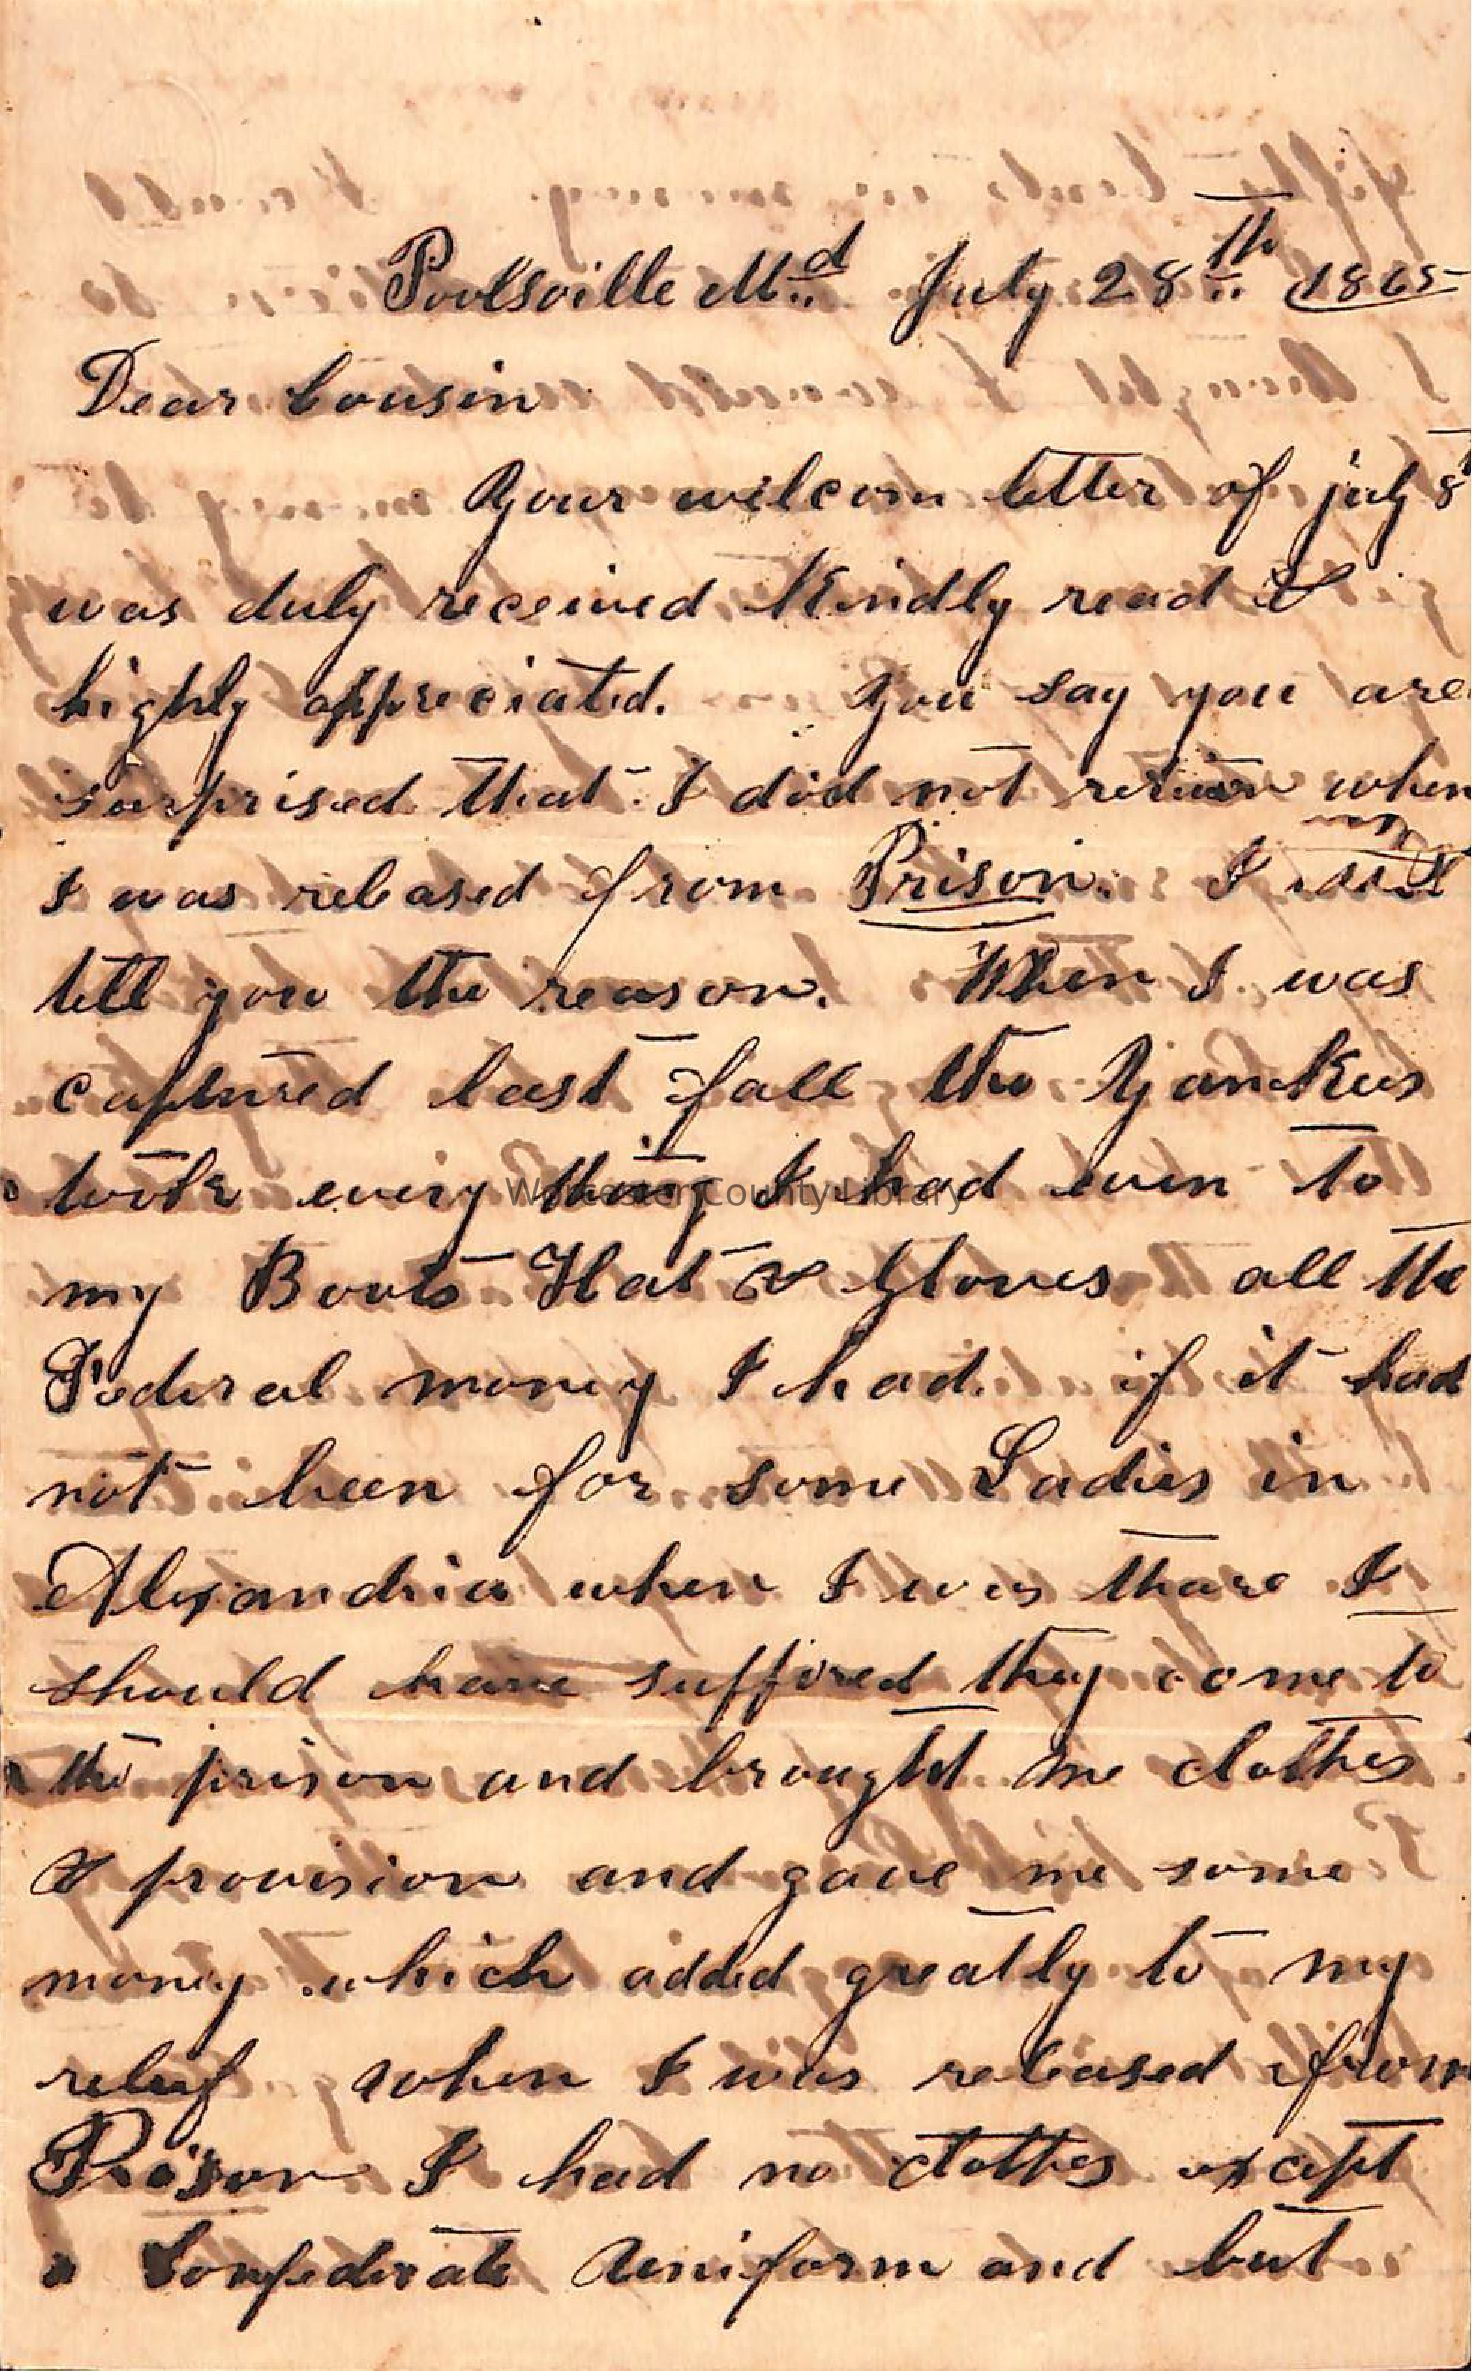 Poolsville Md July 28th 1865
Dear Cousin
Your welcom letter of july 8
was duly received kindly read &
highly appreciated. You say you are
surprised that I did not return when
I was released from Prison. I will
tell you the reason. When I was
captured last fall the Yankees
took every thing I had even to
my Boots Hat & Gloves all the
Federal money I had. if it had
not been for some Ladies in
Alexandria when I was thare I
should have suffered they come to
the prison and brought me clothes
& provision and gave me some
money which added greatly to my
relief when I was released from
Prison I had no clothes except
a Confederate uniform and but
Worcester County Library